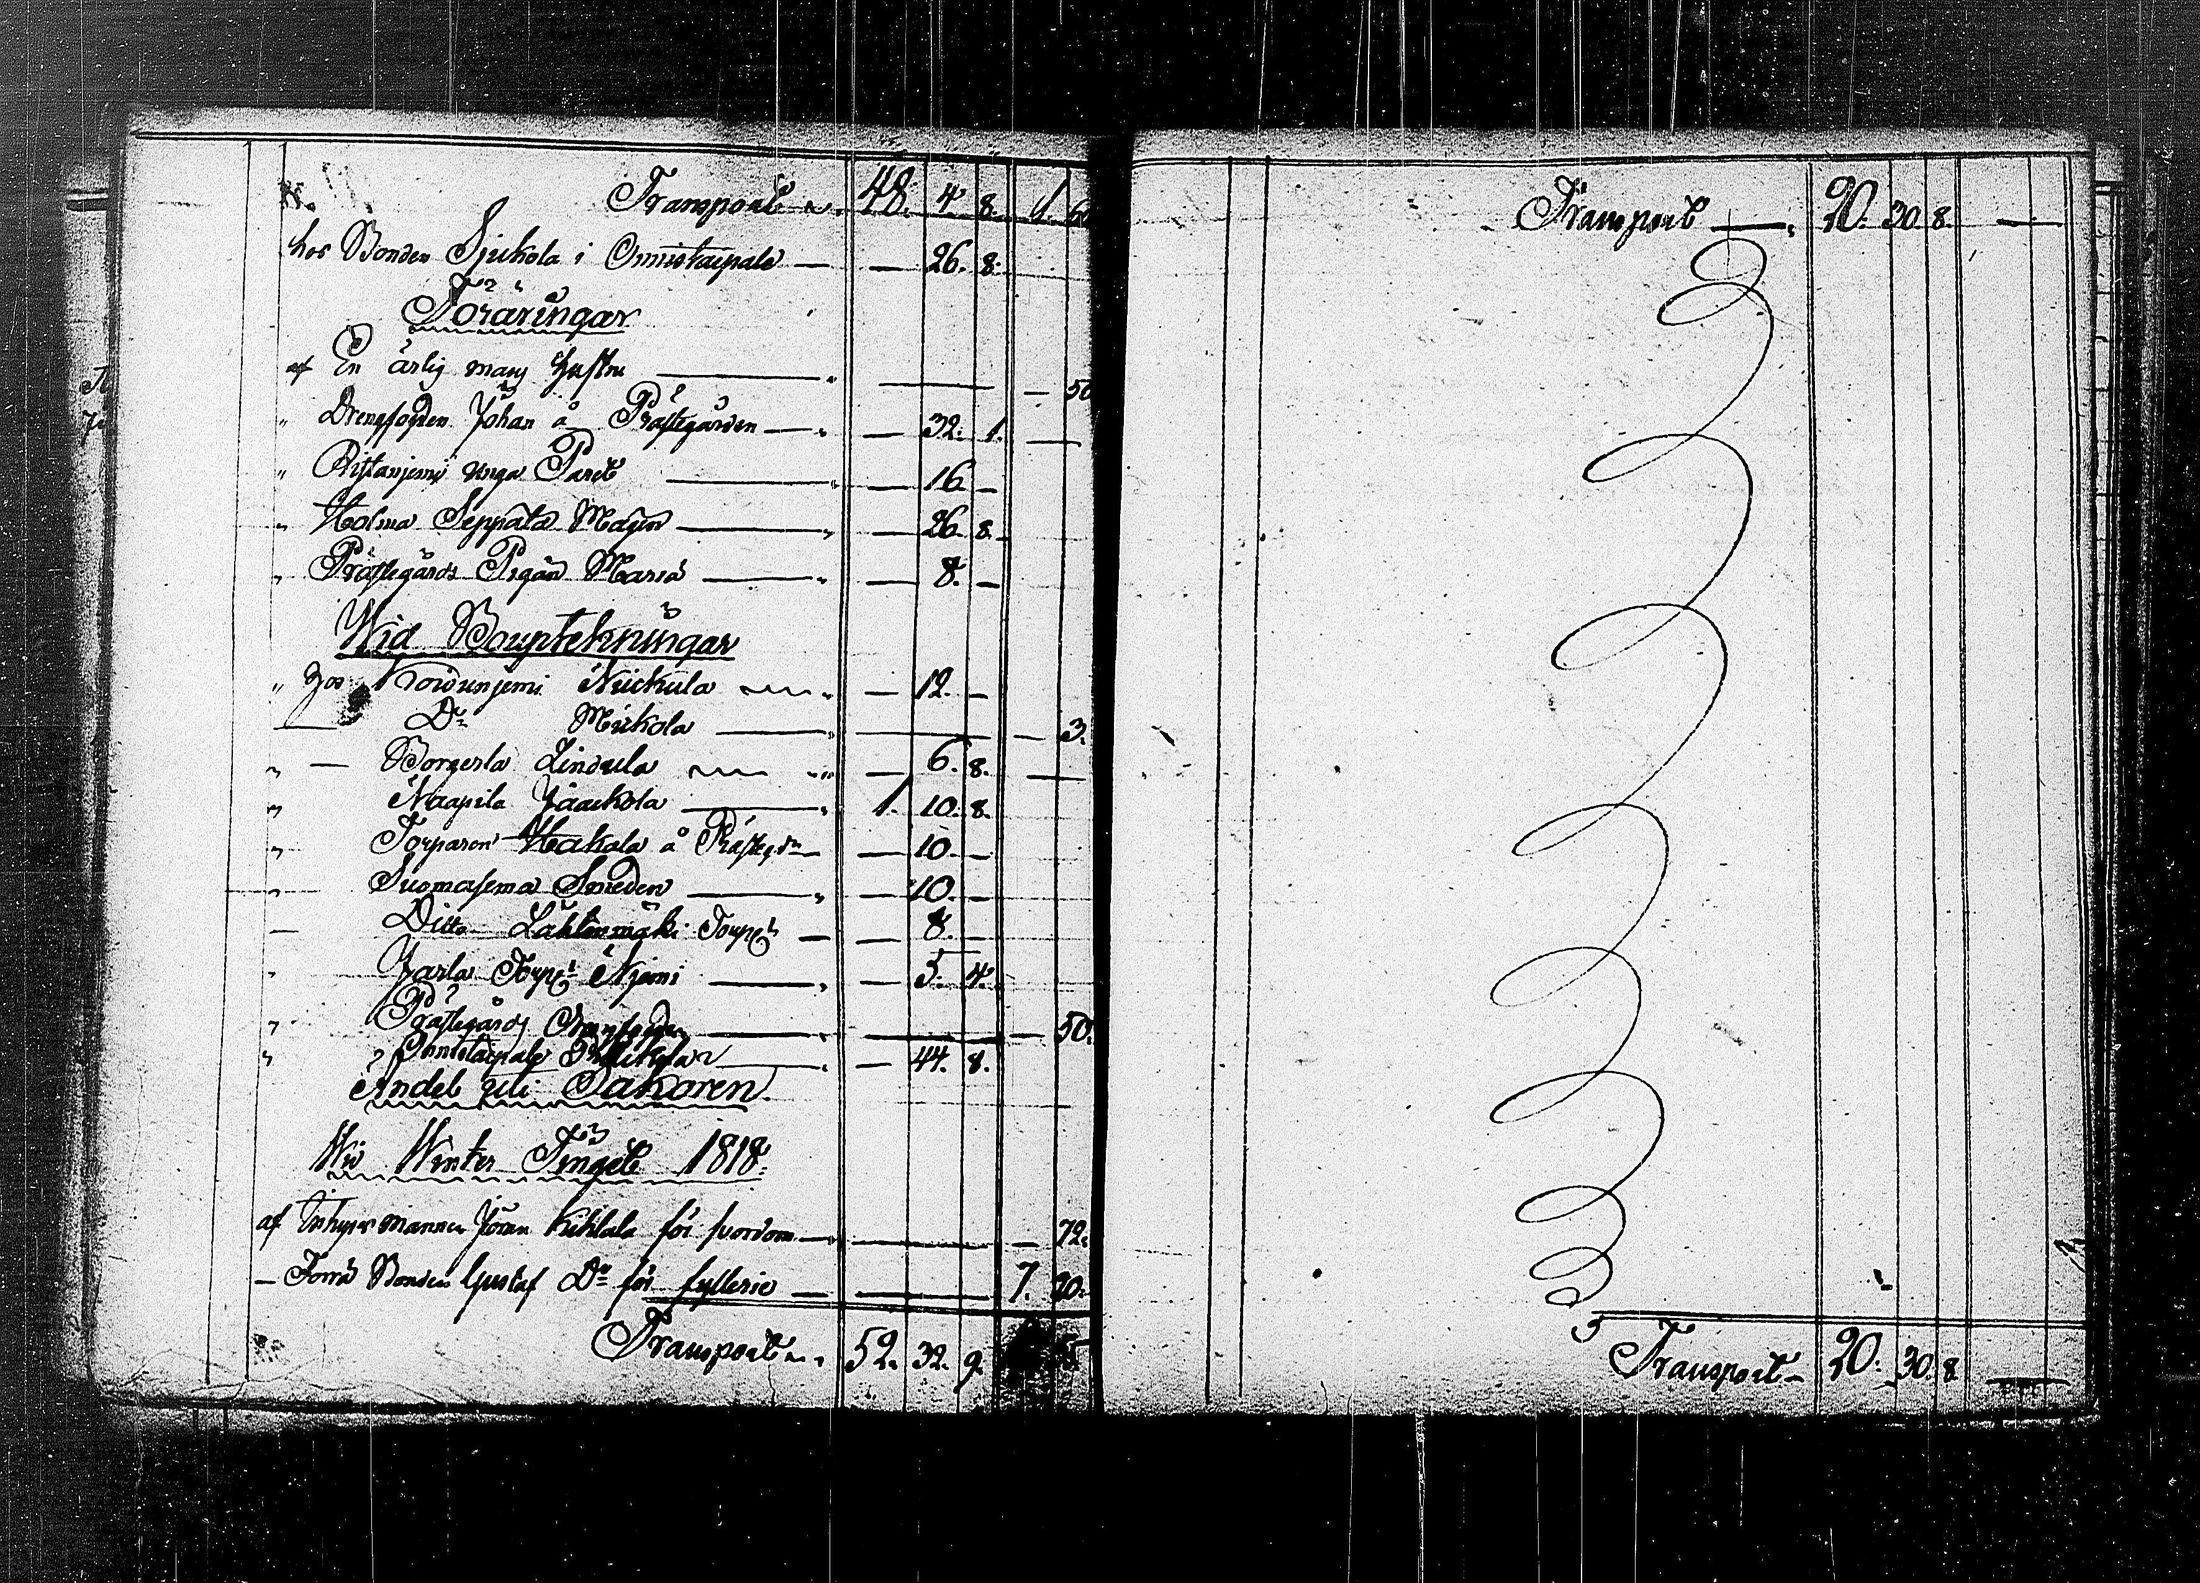 Transport 48. 4. 8. 1. 60
hos Bonden Sjukola i Onnistaipale — — 26. 8.
Föräringar
af En ärlig man — — — 50
" Drengfogden Johan å Prästegården — — 32. 1. —
" Ristanjemi unga Paret — — 16 —
" Holma Seppälä Mågen — — 26. 8.
" Prästegårds Pigan Maria — — 8. —
Wid Bouptekningar
" hos Koivunjemi Nickula — 12. —
— Do Mickola — — — 3.
" — Borgerla Lindula — 6. 8. —
" Naapila Jaackola — 1. 10. 8.
" Torparen Hakala å Prästegdn — — 10. —
" — Suomasema Smeden — — 10. —
— Ditto Lähtenmäki Torpet — — 8. —
" Jarla Torpet Njemi — — 5. 4.
" Prästegårds Drengfogden — — — 50.
" Onnistaipale — — 44. 8.
Andel uti Sakören
Wid Winter Tinget 1818.
af Inhyses mannen Jöran Kihlala för hordom — — — 72.
— Förra Bonden Gustaf Do för fylleri — — 7. 20.
Transport 52. 32. 9.
Transport — 20. 30. 8. —
Transport — 20. 30. 8. —